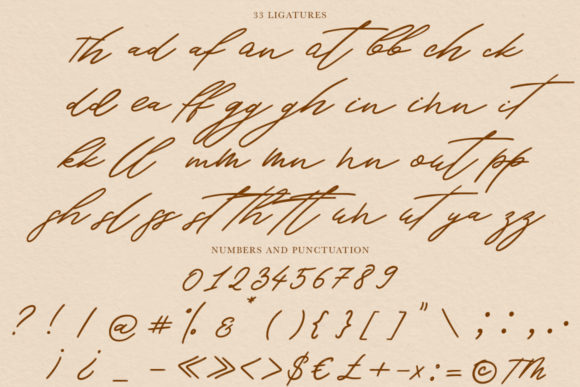 33 LIGATURES
Th ad af an at bb ch ck
dd ea ff gg gh in ihn it
kk ll mm mn nn out pp
sh sl ss st th tt uh ut ya zz
NUMBERS AND PUNCTUATION
0123456789
? ! / @ # % & * ( ) { } [ ] " \ ; : , . .
¡ ¿ _ - « » < > $ € £ + - x : = © TM